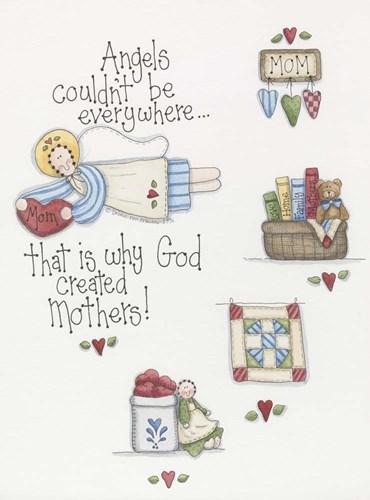 Angels
couldn't be
everywhere...
Mom
that is why God
created
Mothers!
MOM
Home
Family
Mothers